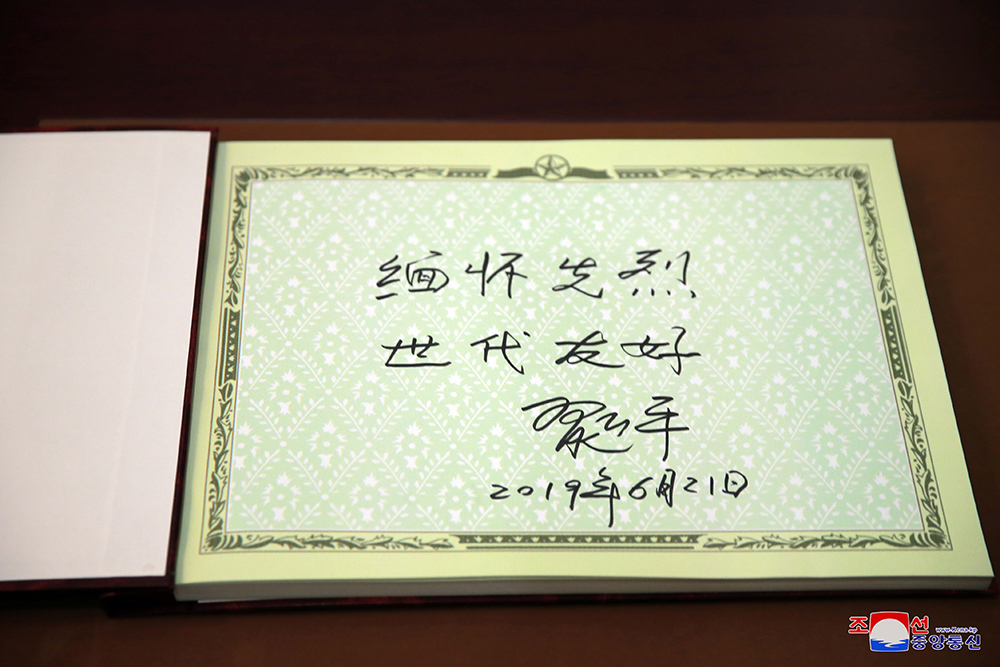 缅怀先烈
世代友好
习近平
2019年6月21日
조선
www.kcna.kp
중앙통신